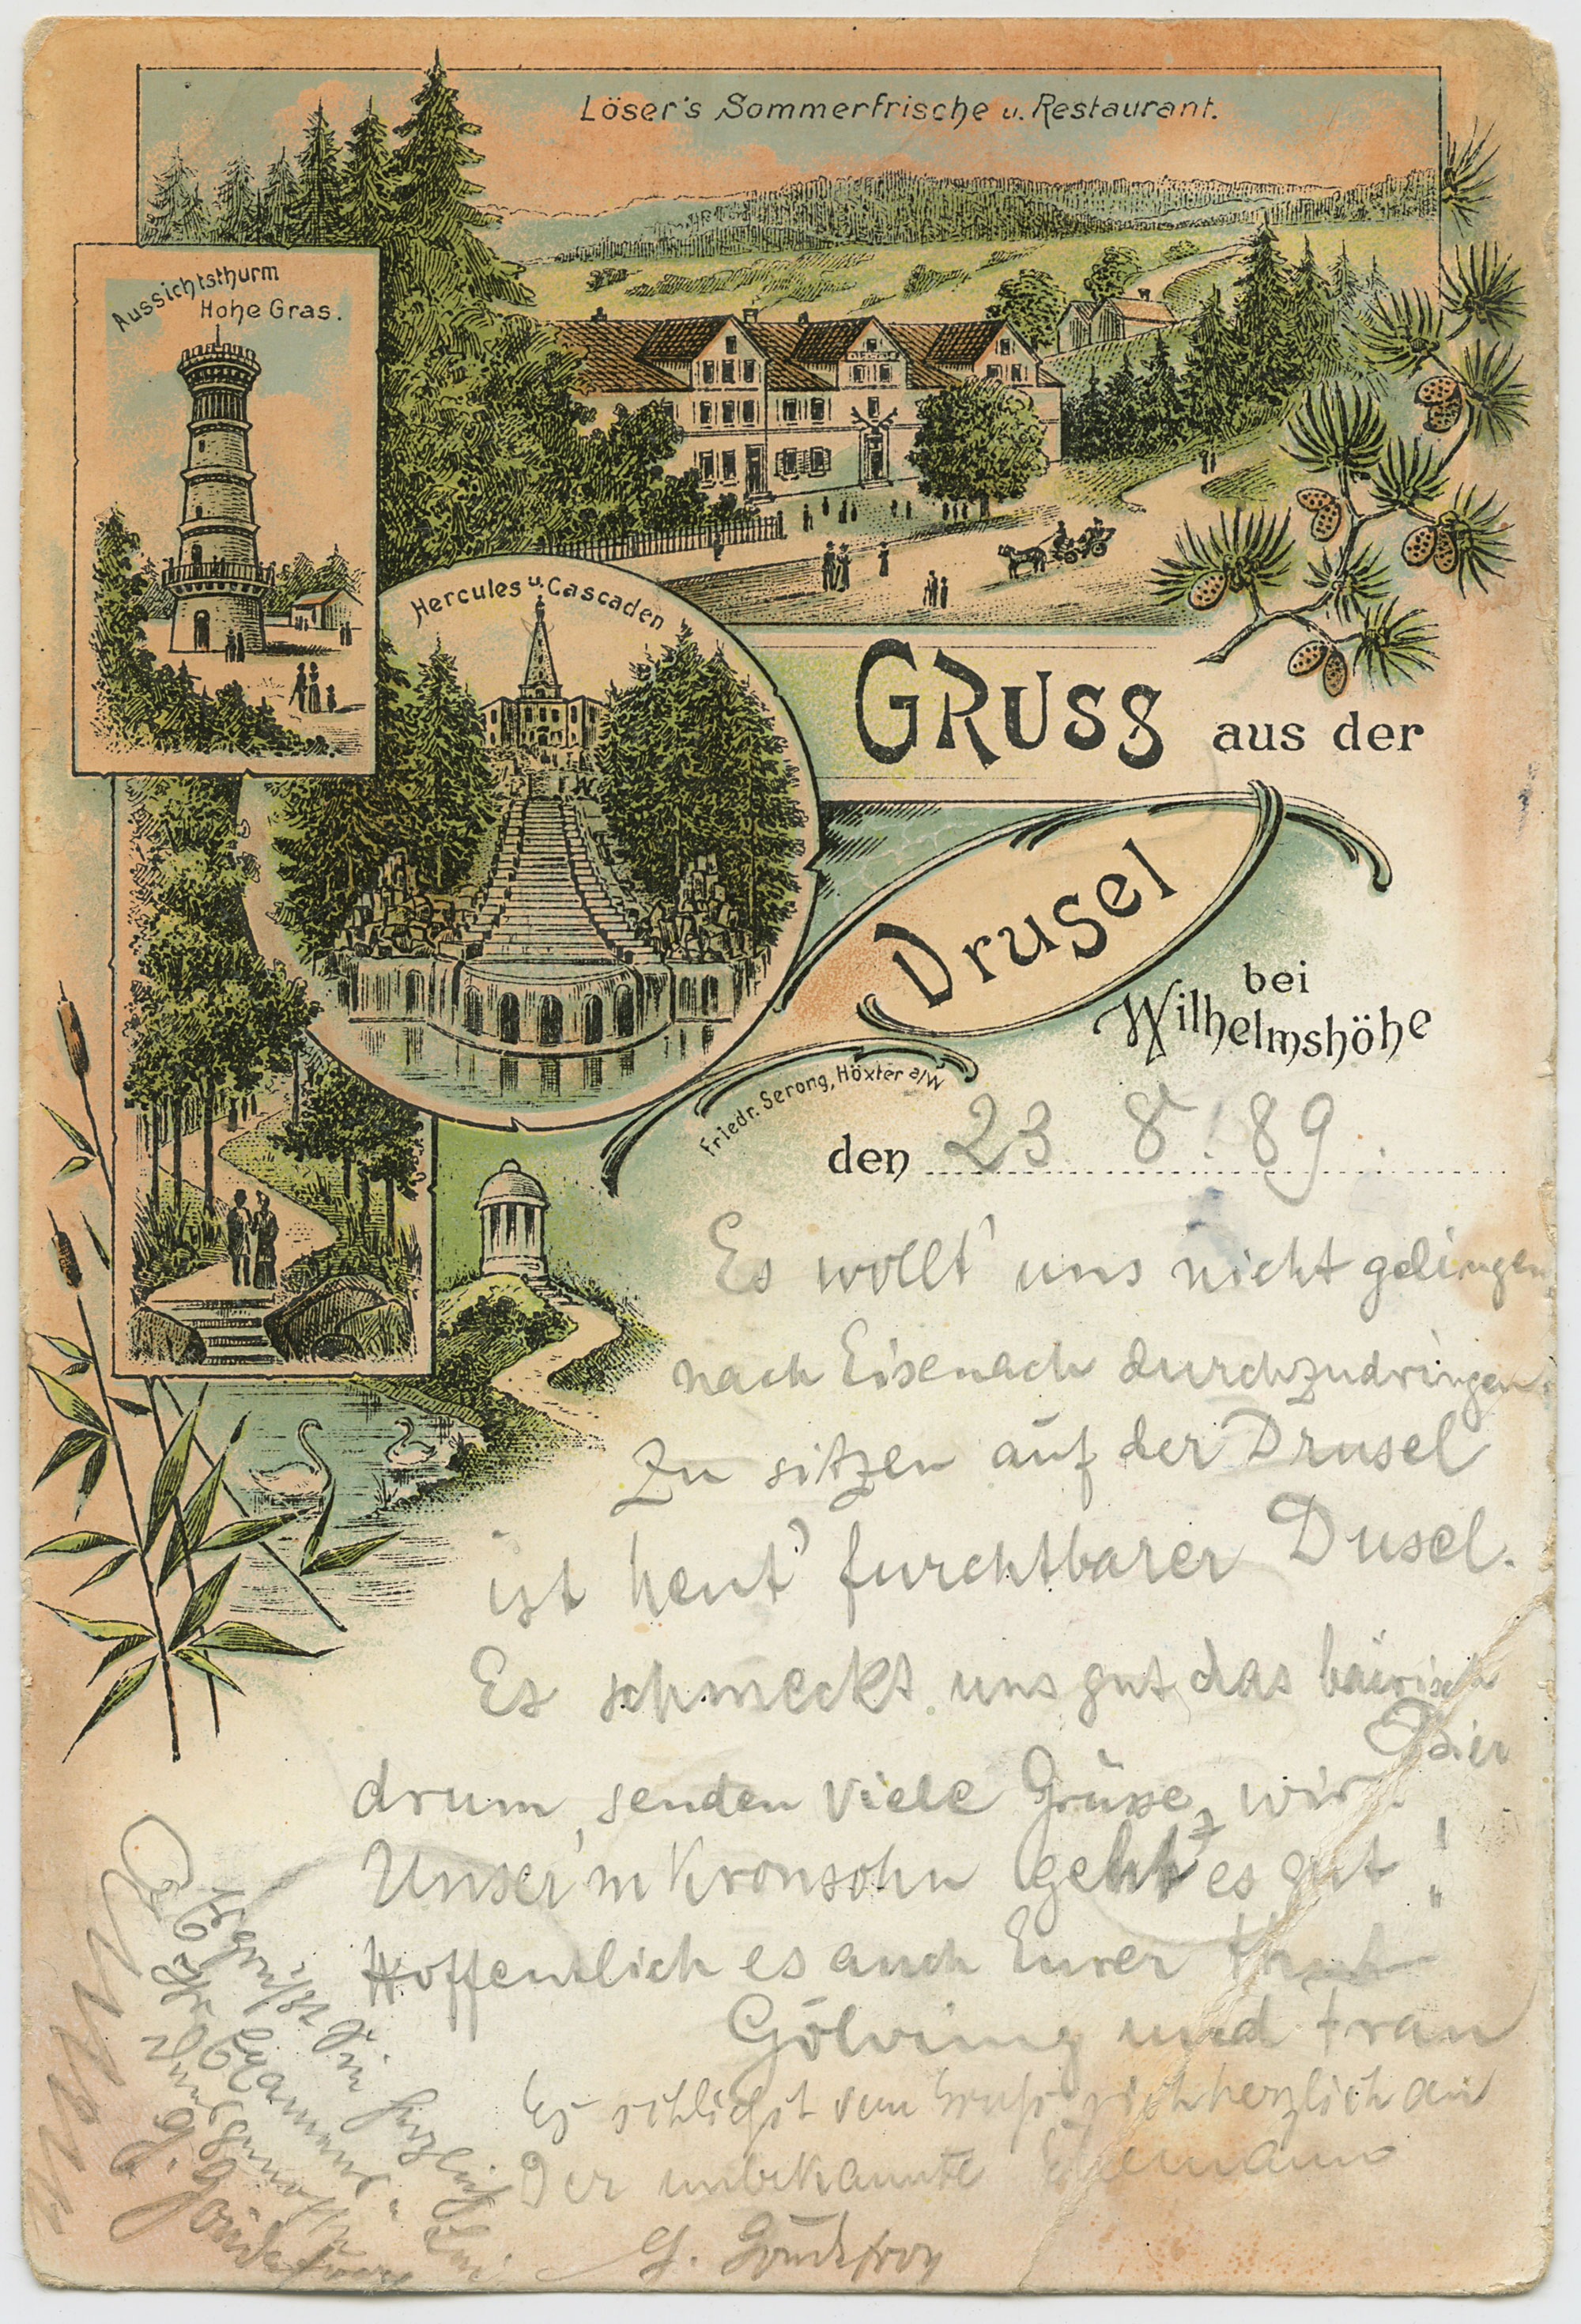 Löser's Sommerfrische u. Restaurant.
Aussichtsthurm
Hohe Gras.
Hercules u. Cascaden
GRUSS aus der
Drusel
bei
Wilhelmshöhe
Friedr. Serong, Höxter a/W
den 23. 8. 89.
Es wollt' uns nicht gelingen
nach Eisenach durchzudringen.
Zu sitzen auf der Drusel
ist heut' furchtbarer Dusel.
Es schmeckt uns gut das bairisch
Bier
drum senden viele Grüsse wir.
Unser'm Kronsohn geht es gut!
Hoffentlich es auch Eurer thut
und Frau
Es schliesst dem Gruss sich herzlich an
Der unbekannte Ehemann
G.
Es grüsst Sie herzlich
Ihr
G.